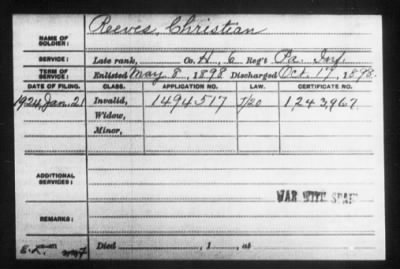 NAME OF SOLDIER: Reeves, Christian
SERVICE: Late rank, Co. H, 6 Reg't Pa. Inf.
TERM OF SERVICE: Enlisted May 8, 1898 Discharged Oct. 17, 1898.
DATE OF FILING. CLASS. APPLICATION NO. LAW. CERTIFICATE NO.
1924, Jan. 21 Invalid, 1494517 J/20 1243967
Widow,
Minor,
ADDITIONAL SERVICES:
WAR WITH SPAIN
REMARKS:
Died , 1 , at